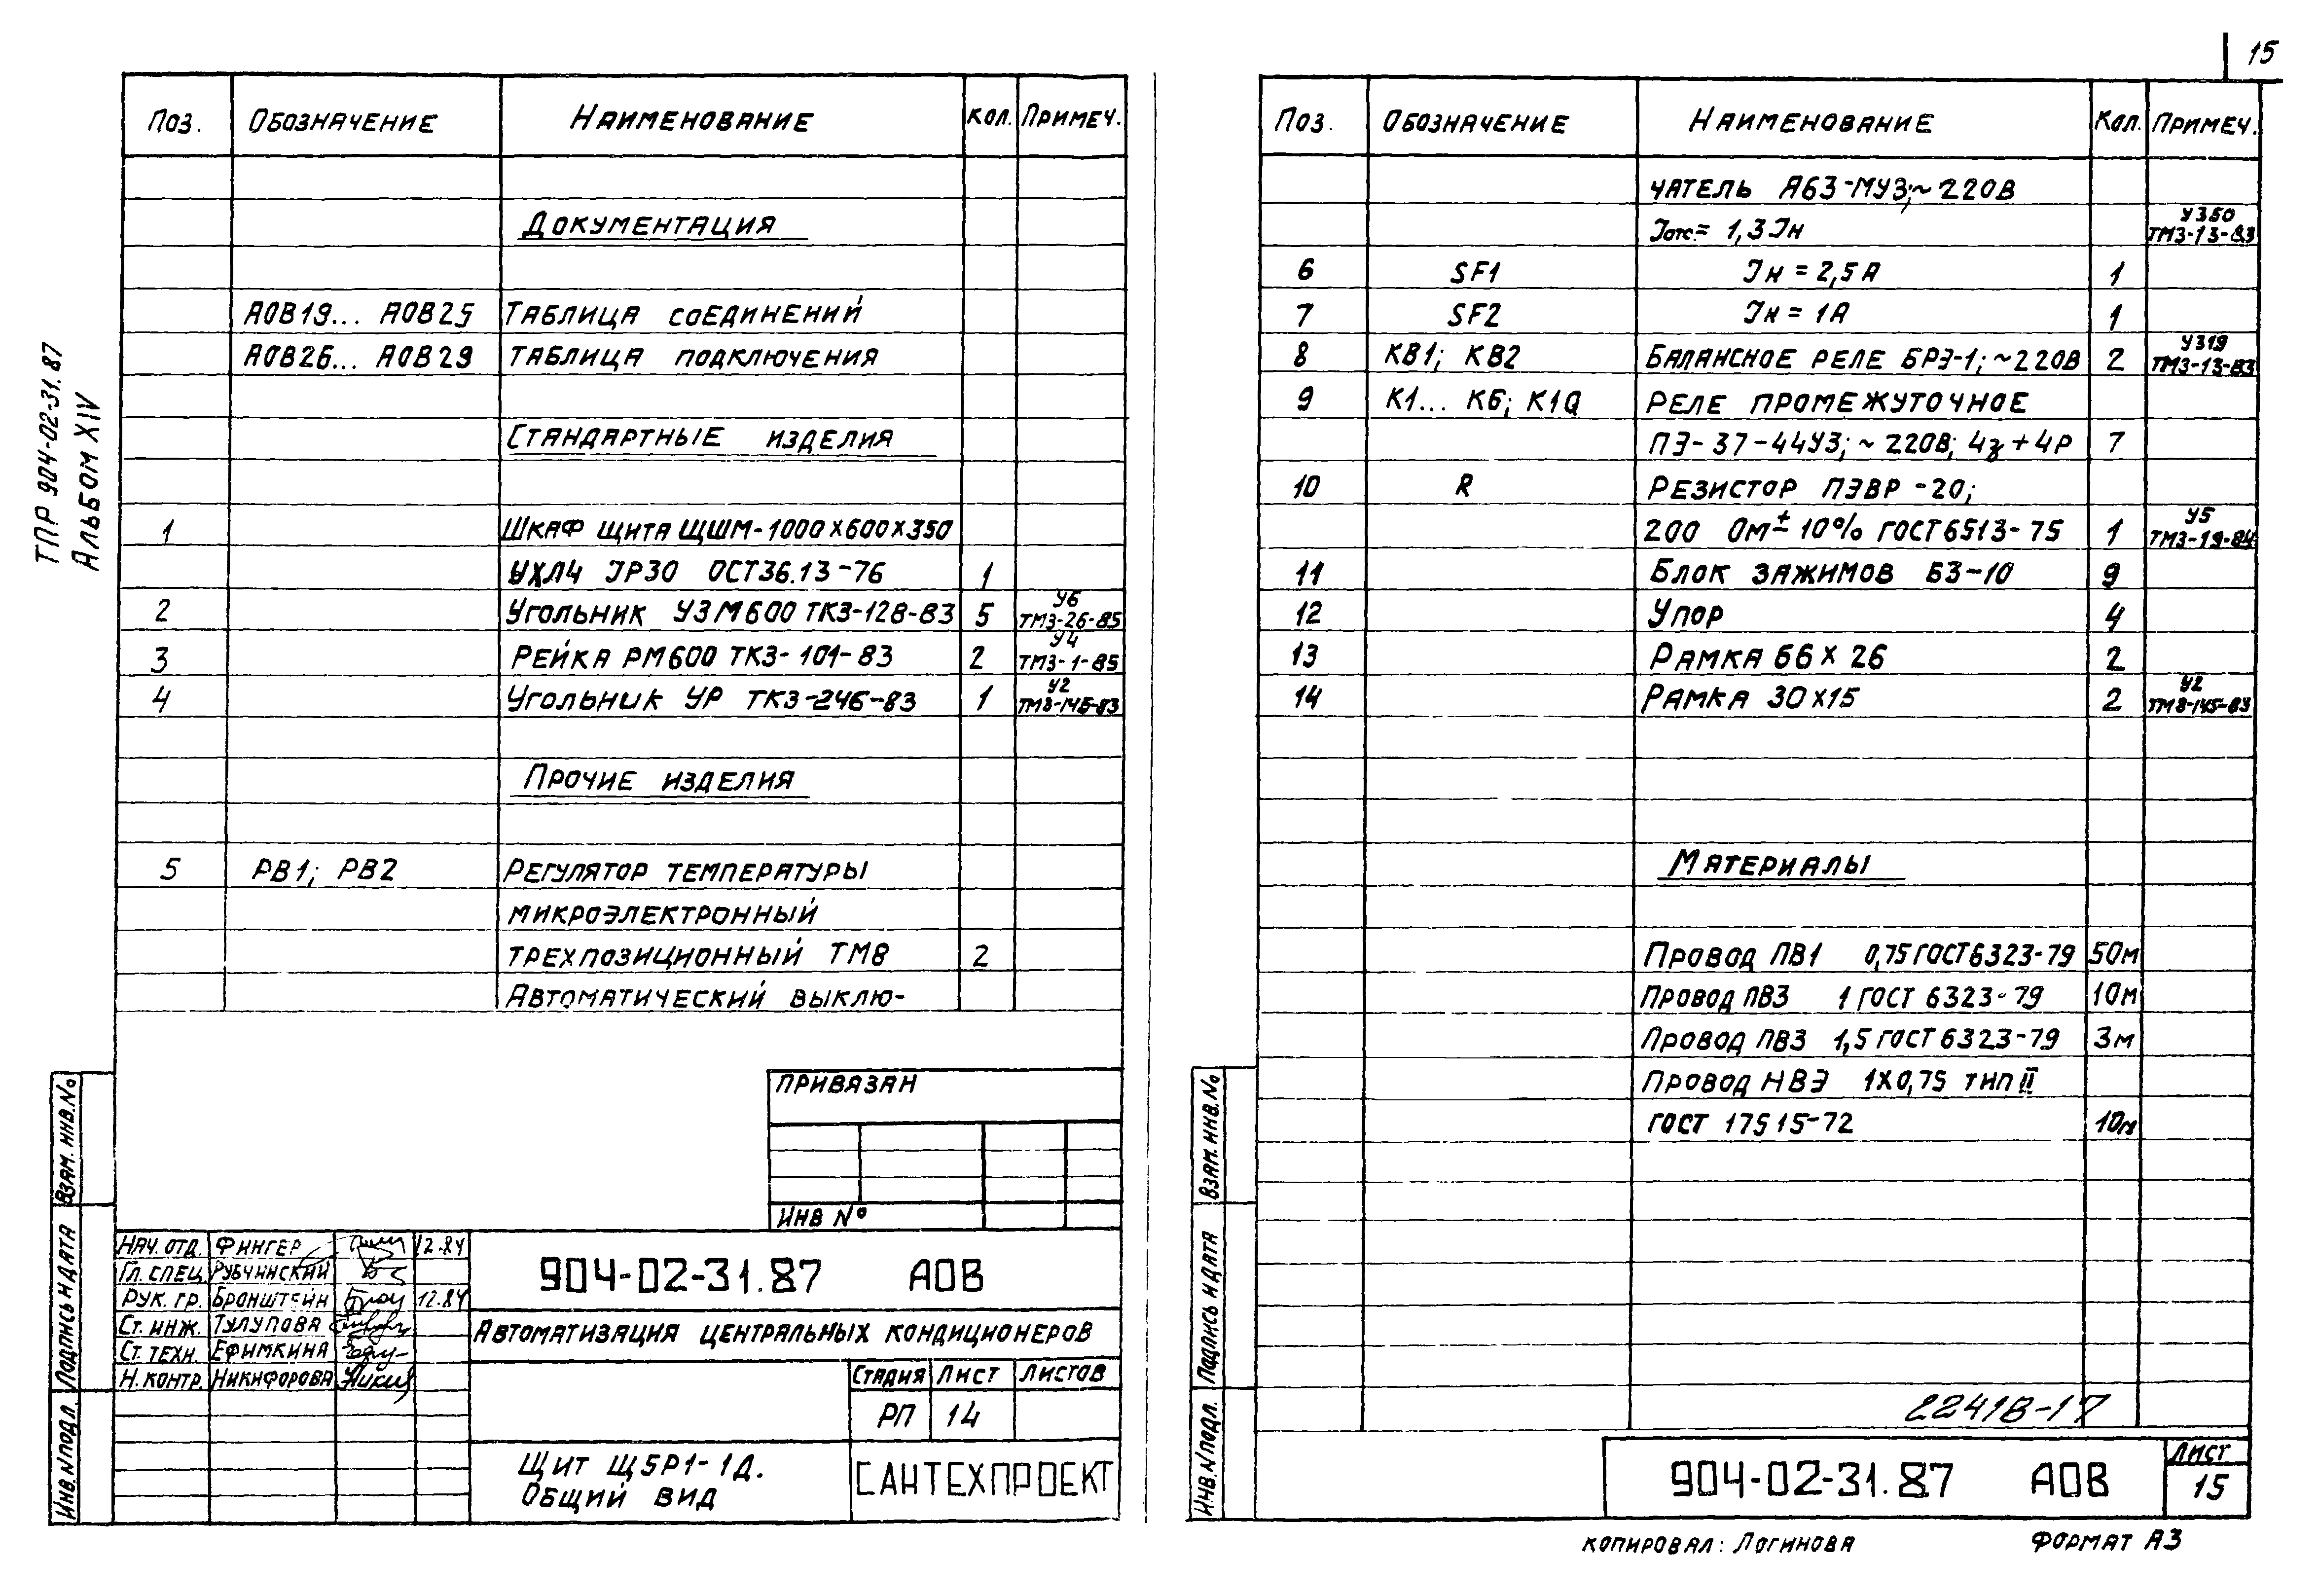 15
ТПР 904-02-31.87
Альбом XIV
Поз. Обозначение Наименование Кол. Примеч.
Документация
АОВ19... АОВ25 Таблица соединений
АОВ26... АОВ29 Таблица подключения
Стандартные изделия
1 Шкаф щита ЩШМ-1000х600х350
УХЛ4 IP30 ОСТ36.13-76 1
2 Угольник УЗМ600 ТК3-128-83 5 У6 ТМ3-26-85
3 Рейка РМ600 ТК3-101-83 2 У4 ТМ3-1-85
4 Угольник УР ТК3-246-83 1 У2 ТМ8-145-83
Прочие изделия
5 РВ1; РВ2 Регулятор температуры
микроэлектронный
трехпозиционный ТМ8 2
Автоматический выклю-
Привязан
Инв №
Нач. отд. Фингер 12.84
Гл. спец. Рубчинский
Рук. гр. Бронштейн 12.84
Ст. инж. Тулупова
Ст. техн. Ефимкина
Н. контр. Никифорова
904-02-31.87 АОВ
Автоматизация центральных кондиционеров
Стадия Лист Листов
РП 14
Щит Щ5Р1-1Д.
Общий вид
САНТЕХПРОЕКТ
Взам. инв. №
Подпись и дата
Инв. № подл.
Поз. Обозначение Наименование Кол. Примеч.
чатель А63-МУ3; ~220В
Iотс.= 1,3Iн У350 ТМ3-13-83
6 SF1 Iн = 2,5А 1
7 SF2 Iн = 1А 1
8 КВ1; КВ2 Балансное реле БРЭ-1; ~220В 2 У319 ТМ3-13-83
9 К1... К6; К10 Реле промежуточное
ПЭ-37-44У3; ~220В; 4з+4р 7
10 R Резистор ПЭВР-20;
200 Ом ± 10% ГОСТ6513-75 1 У5 ТМ3-19-84
11 Блок зажимов БЗ-10 9
12 Упор 4
13 Рамка 66х26 2
14 Рамка 30х15 2 У2 ТМ8-145-83
Материалы
Провод ПВ1 0,75 ГОСТ6323-79 50м
Провод ПВ3 1 ГОСТ 6323-79 10м
Провод ПВ3 1,5 ГОСТ6323-79 3м
Провод НВЭ 1х0,75 тип II
ГОСТ 17515-72 10м
22418-17
904-02-31.87 АОВ
Лист
15
Взам. инв. №
Подпись и дата
Инв. № подл.
Копировал: Логинова Формат А3